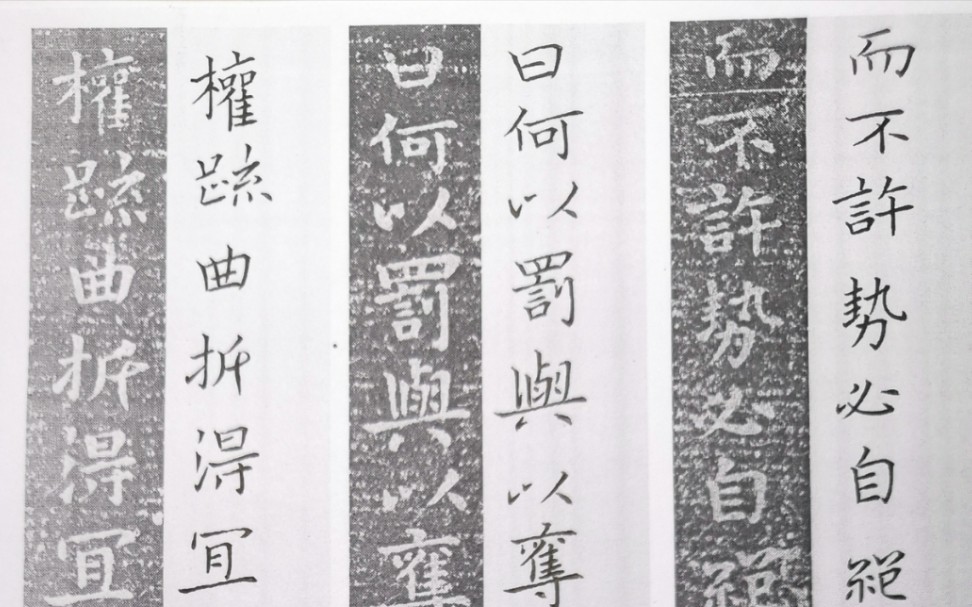 而不許勢必自絕
而不許勢必自絕
曰何以罰與以奪
曰何以罰與以奪
權疏曲折得宜
權疏曲折得宜